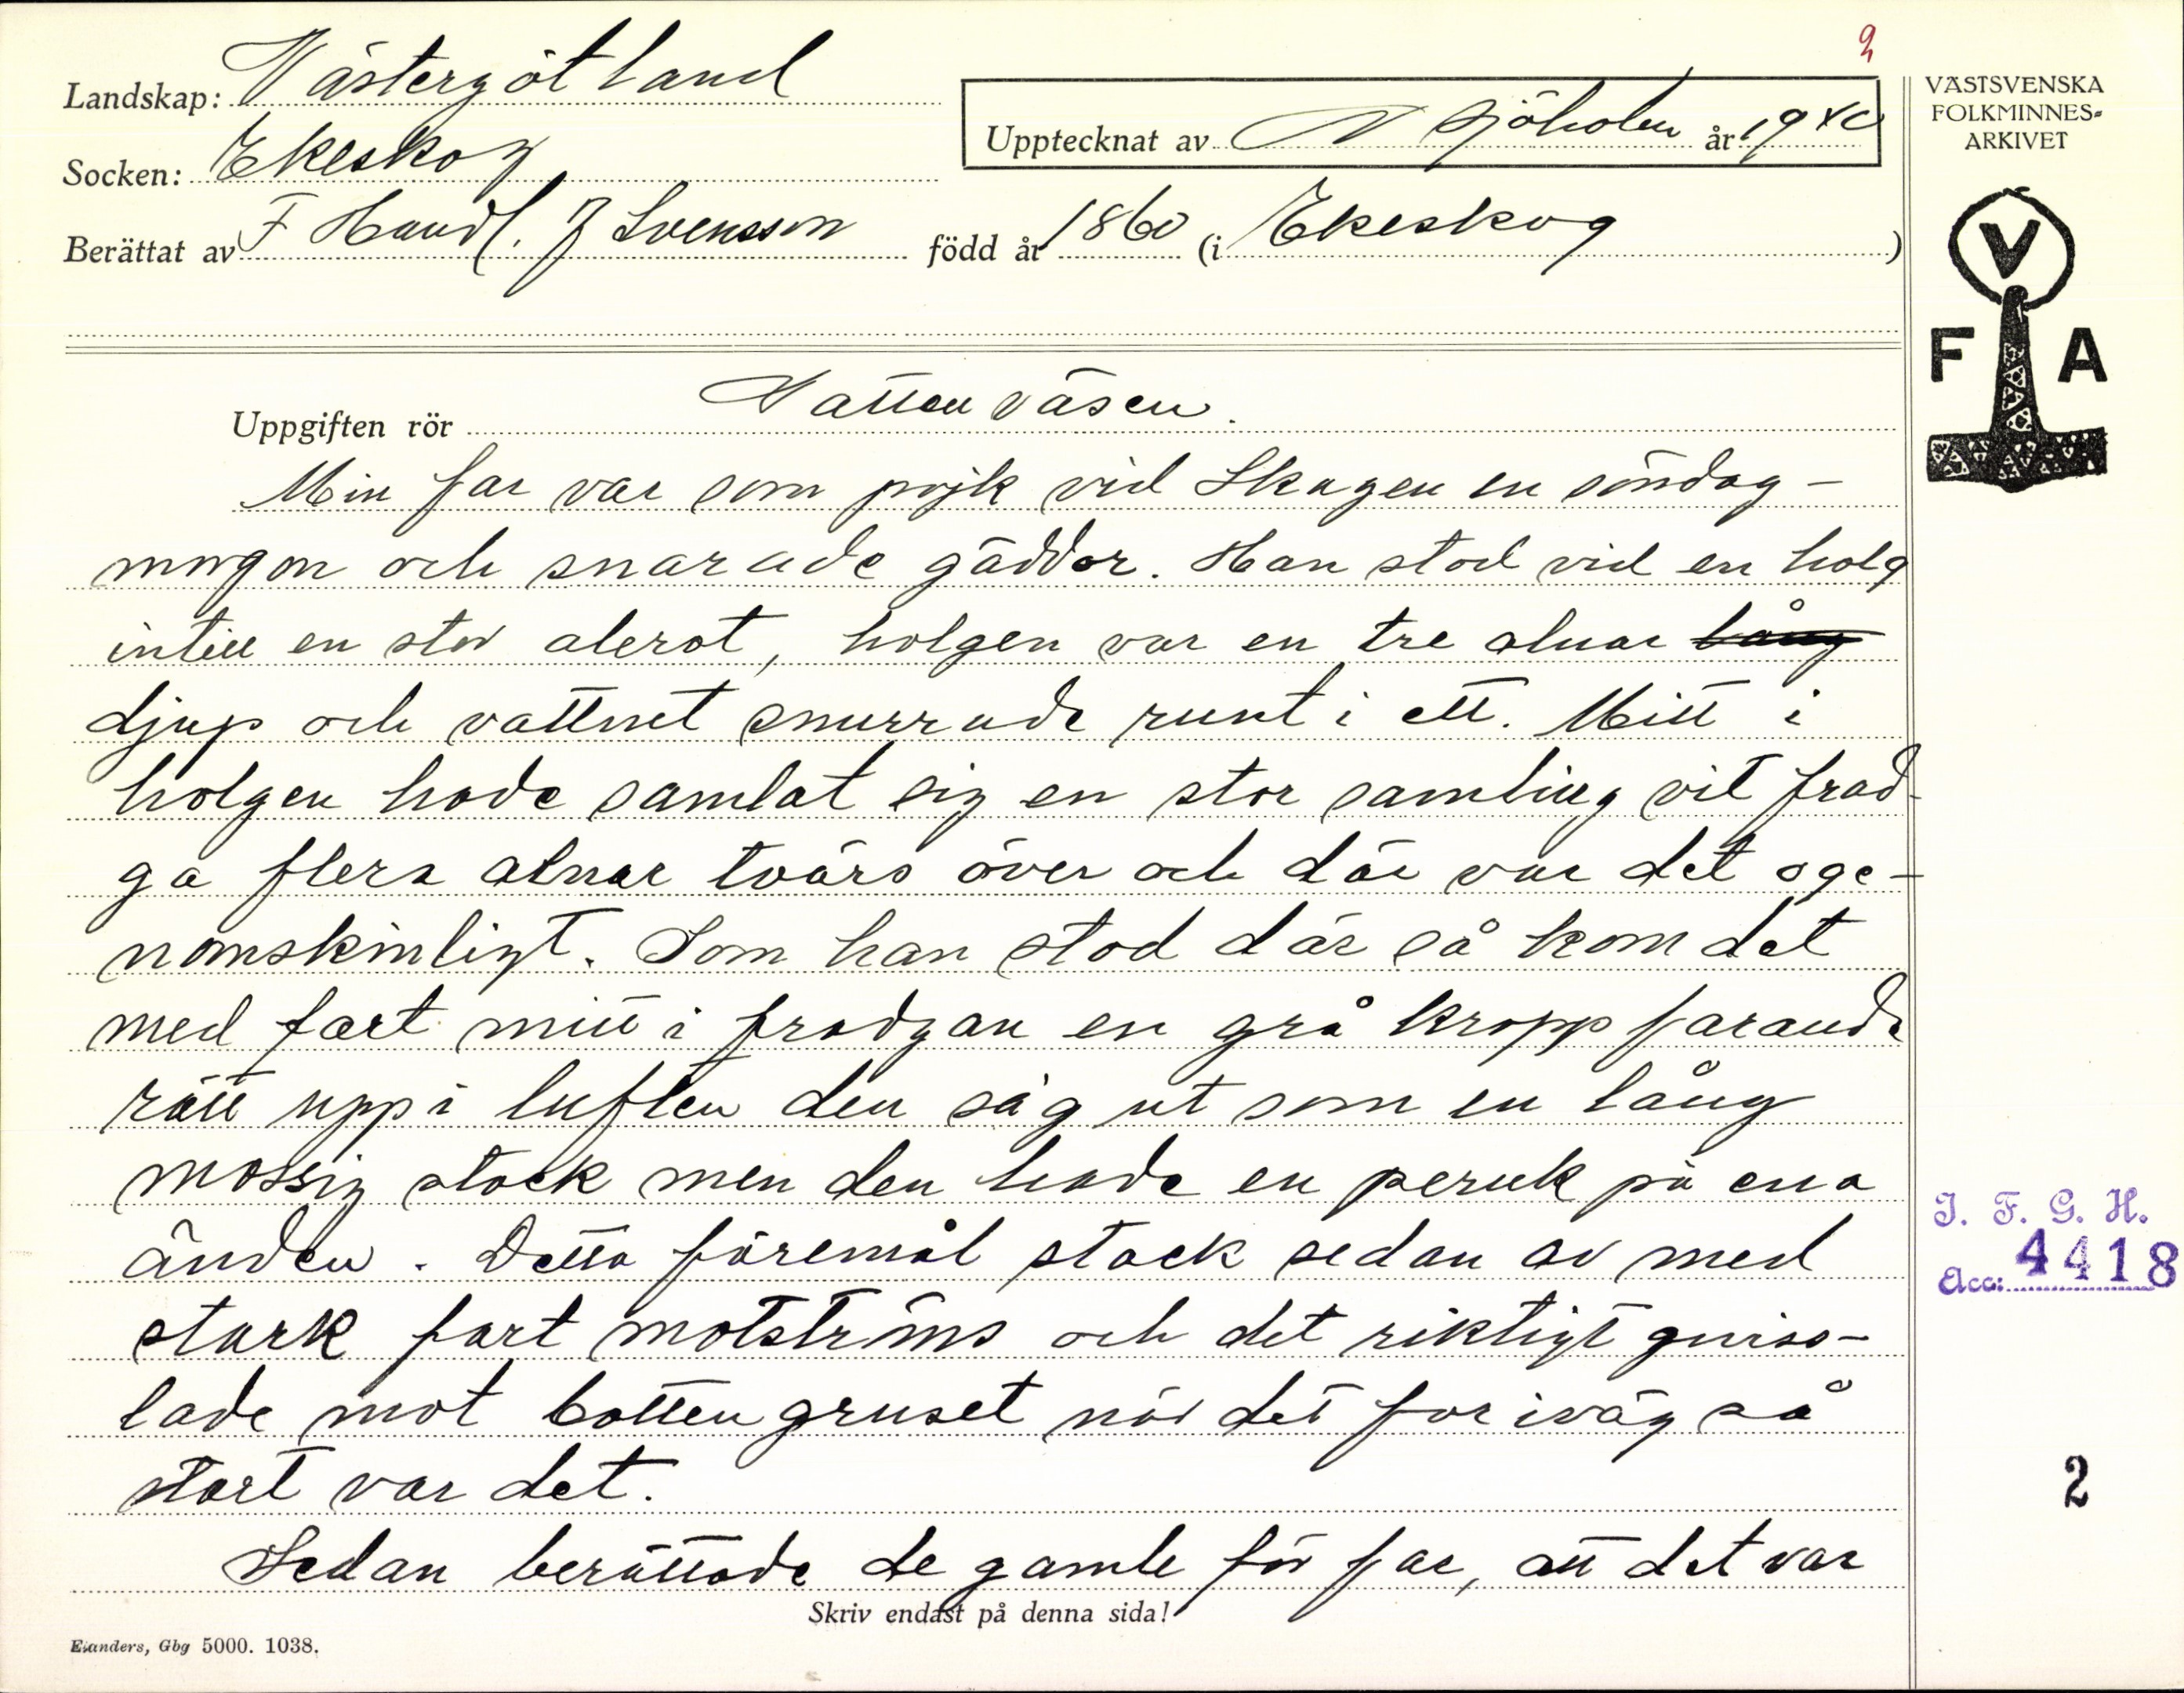 2
Landskap: Västergötland
Socken: Ekeskog
Upptecknat av N Sjöholm år 1940
Berättat av F Handl. J Svensson född år 1860 (i Ekeskog )
VÄSTSVENSKA
FOLKMINNES-
ARKIVET
V
F A
Uppgiften rör Vattenväsen.
Min far var som pojk vid Skagen en söndag-
morgon och snarade gäddor. Han stod vid en holg
intill en stor alerot, holgen var en tre alnar lång
djup och vattnet snurrade runt i ett. Mitt i
holgen hade samlat sig en stor samling vit frad-
ga flera alnar tvärs över och där var det oge-
nomskinligt. Som han stod där så kom det
med fart mitt i fradgan en grå kropp farande
rätt upp i luften den såg ut som en lång
mossig stock men den hade en peruk på ena
änden. Detta föremål stack sedan av med
stark fart motströms och det riktigt gniss-
lade mot bottengruset när det for iväg så
stort var det.
Sedan berättade de gamle för far, att det var
Skriv endast på denna sida!
I. F. G. H.
Acc: 4418
2
Elanders, Gbg 5000. 1038.